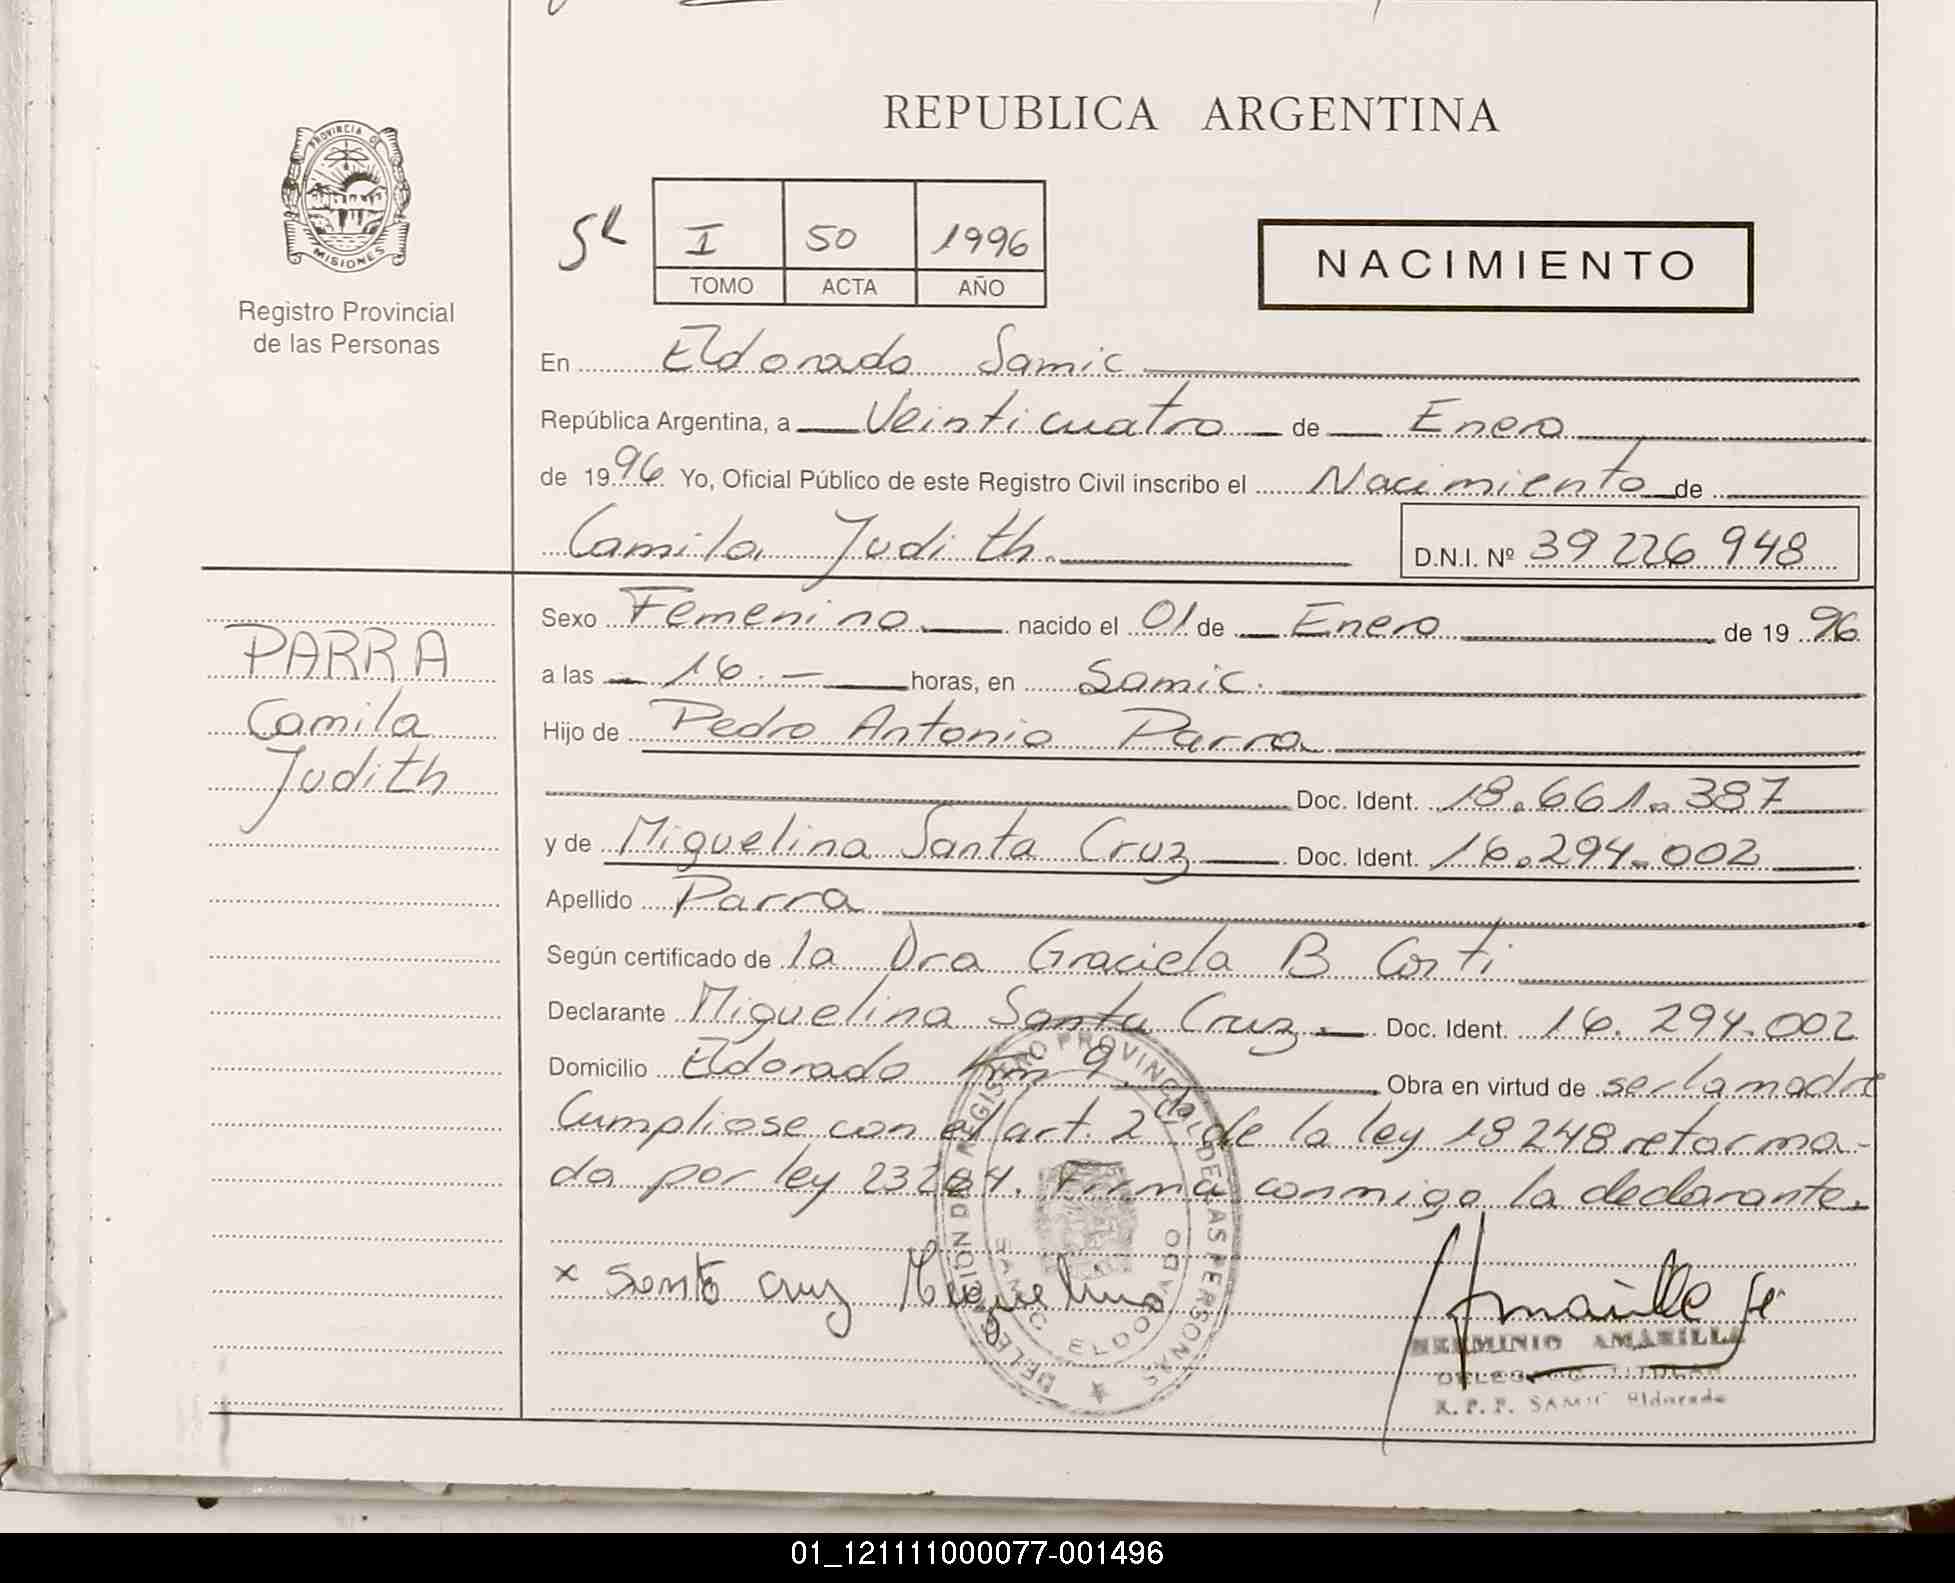 REPUBLICA ARGENTINA
PROVINCIA D
MISIONES
Registro Provincial
de las Personas
I 50 1996
TOMO ACTA AÑO
NACIMIENTO
En Eldorado Samic
República Argentina, a Veinticuatro de Enero
de 1996 Yo, Oficial Público de este Registro Civil inscribo el Nacimiento de
Camila Judith. D.N.I. Nº 39 226 948
PARRA
Camila
Judith
Sexo Femenino nacido el 01 de Enero de 1996
a las 16.- horas, en Samic.
Hijo de Pedro Antonio Parra
Doc. Ident. 18.661.387
y de Miguelina Santa Cruz Doc. Ident. 16.294.002
Apellido Parra
Según certificado de la Dra Graciela B Corti
Declarante Miguelina Santa Cruz Doc. Ident. 16.294.002
Domicilio Eldorado km 9. Obra en virtud de ser la madre
Cumpliose con el art. 2 de la ley 18248 reforma-
da por ley 23264. Firma conmigo la declarante.
x Santa Cruz Miguelina
DELEGACION DEL REGISTRO PROVINCIAL DE LAS PERSONAS
SAMIC ELDORADO
HERMINIO AMARILLA
DELEGADO TITULAR
R. P. P. SAMIC Eldorado
01_121111000077-001496